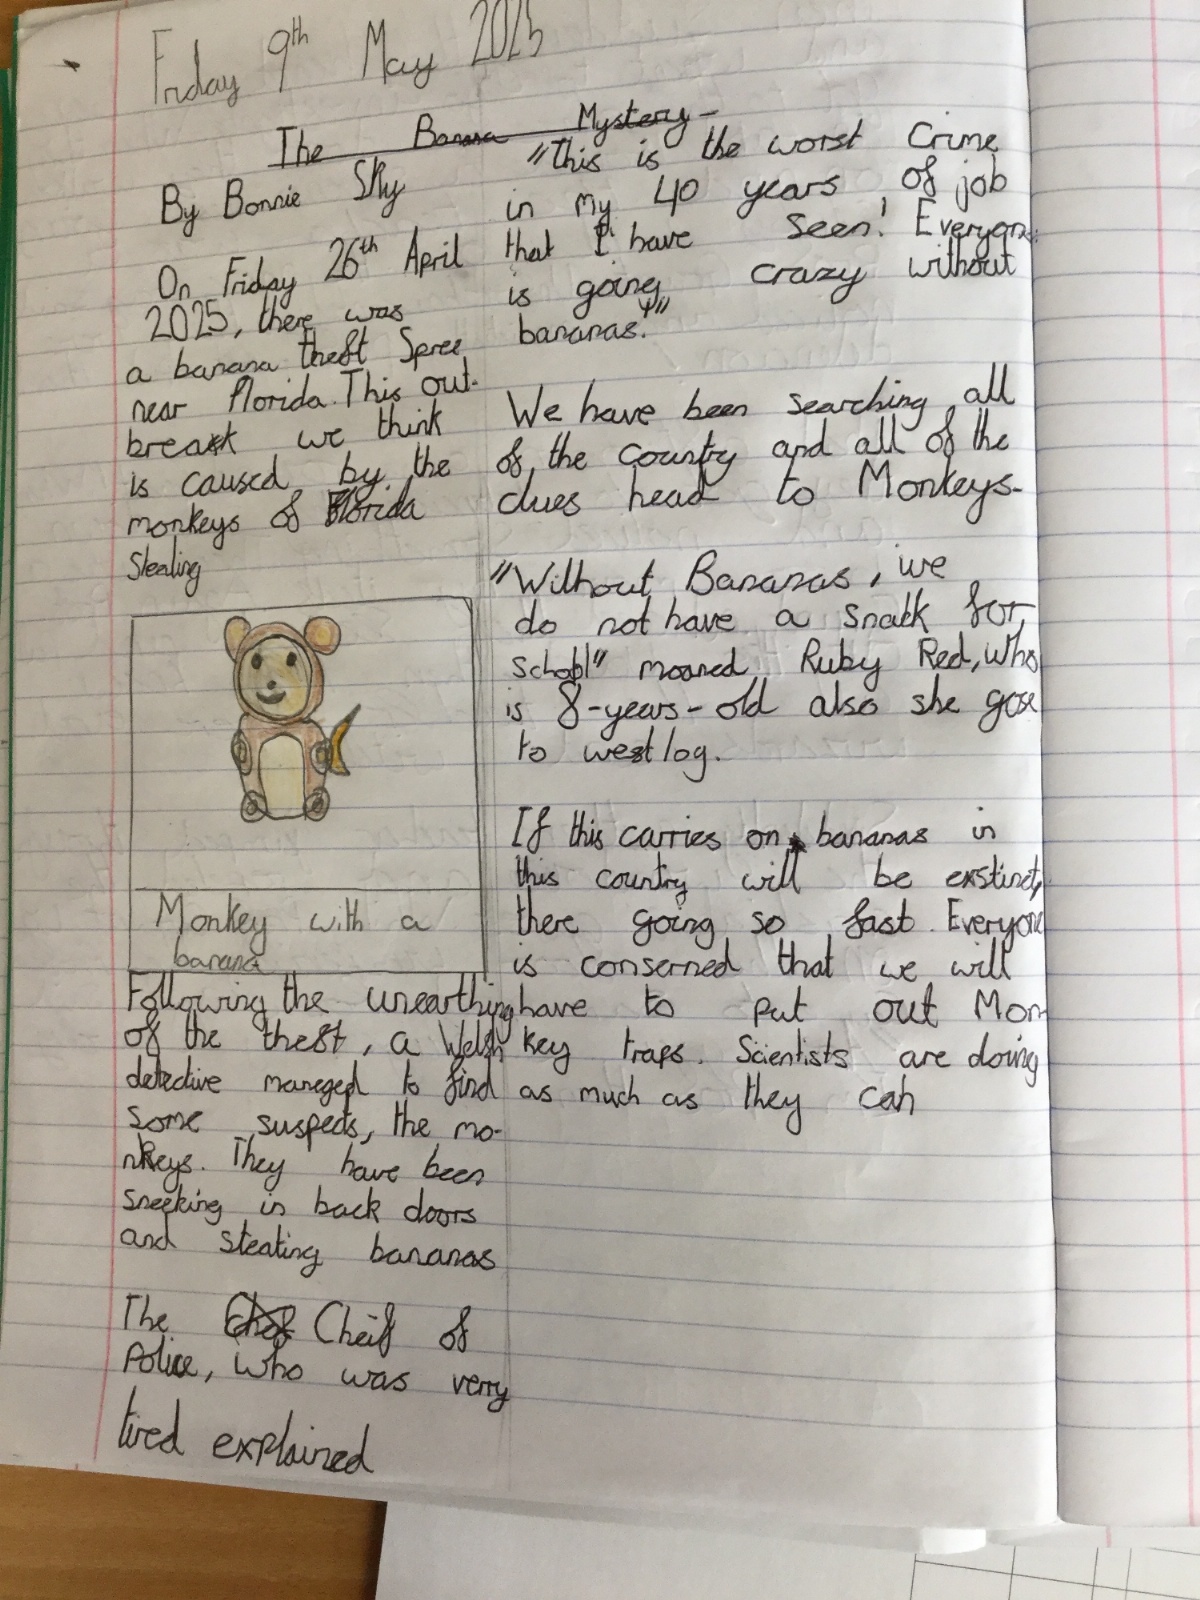 Friday 9th May 2025
The Banana Mystery
By Bonnie Sky
On Friday 26th April
2025, there was
a banana theft Spree
near Florida. This out-
break we think
is caused by the
monkeys of Florida
Stealing
Monkey with a
banana
Following the unearthing
of the theft, a Welsh
detective maneged to find
some suspects, the mo-
nkeys. They have been
sneeking in back doors
and stealing bananas
The Cheif of
Police, who was verry
tired explained
"This is the worst Crime
in my 40 years of job
that I have seen! Everyone
is going crazy without
bananas!"
We have been searching all
of the country and all of the
clues head to Monkeys.
"Without Bananas, we
do not have a snack for
school" moaned Ruby Red, who
is 8-years-old also she gose
to westlog.
If this carries on, bananas in
this country will be exstinct,
there going so fast. Everyone
is conserned that we will
have to put out Mon
key traps. Scientists are doing
as much as they can